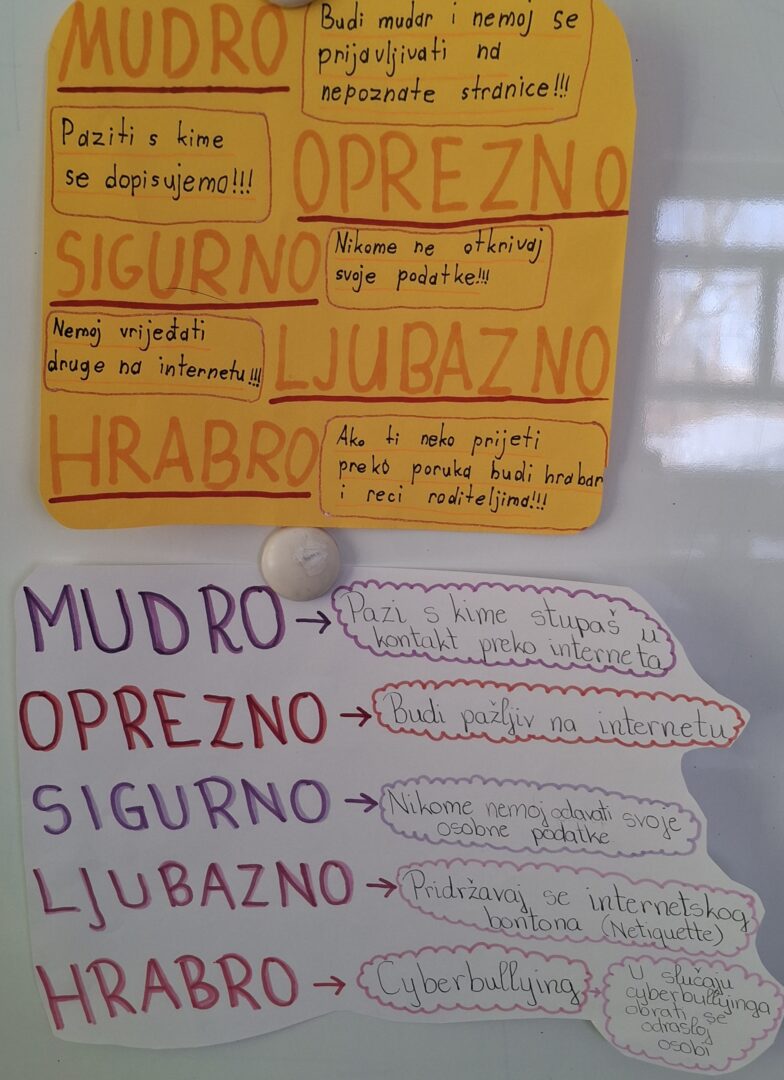 MUDRO
Budi mudar i nemoj se
prijavljivati na
nepoznate stranice!!!
Paziti s kime
se dopisujemo!!!
OPREZNO
SIGURNO
Nikome ne otkrivaj
svoje podatke!!!
Nemoj vrijeđati
druge na internetu!!!
LJUBAZNO
HRABRO
Ako ti neko prijeti
preko poruka budi hrabar
i reci roditeljima!!!
MUDRO →
Pazi s kime stupaš u
kontakt preko interneta
OPREZNO →
Budi pažljiv na internetu
SIGURNO →
Nikome nemoj odavati svoje
osobne podatke
LJUBAZNO →
Pridržavaj se internetskog
bontona (Netiquette)
HRABRO →
Cyberbullying →
U slučaju
cyberbullyinga
obrati se
odrasloj
osobi